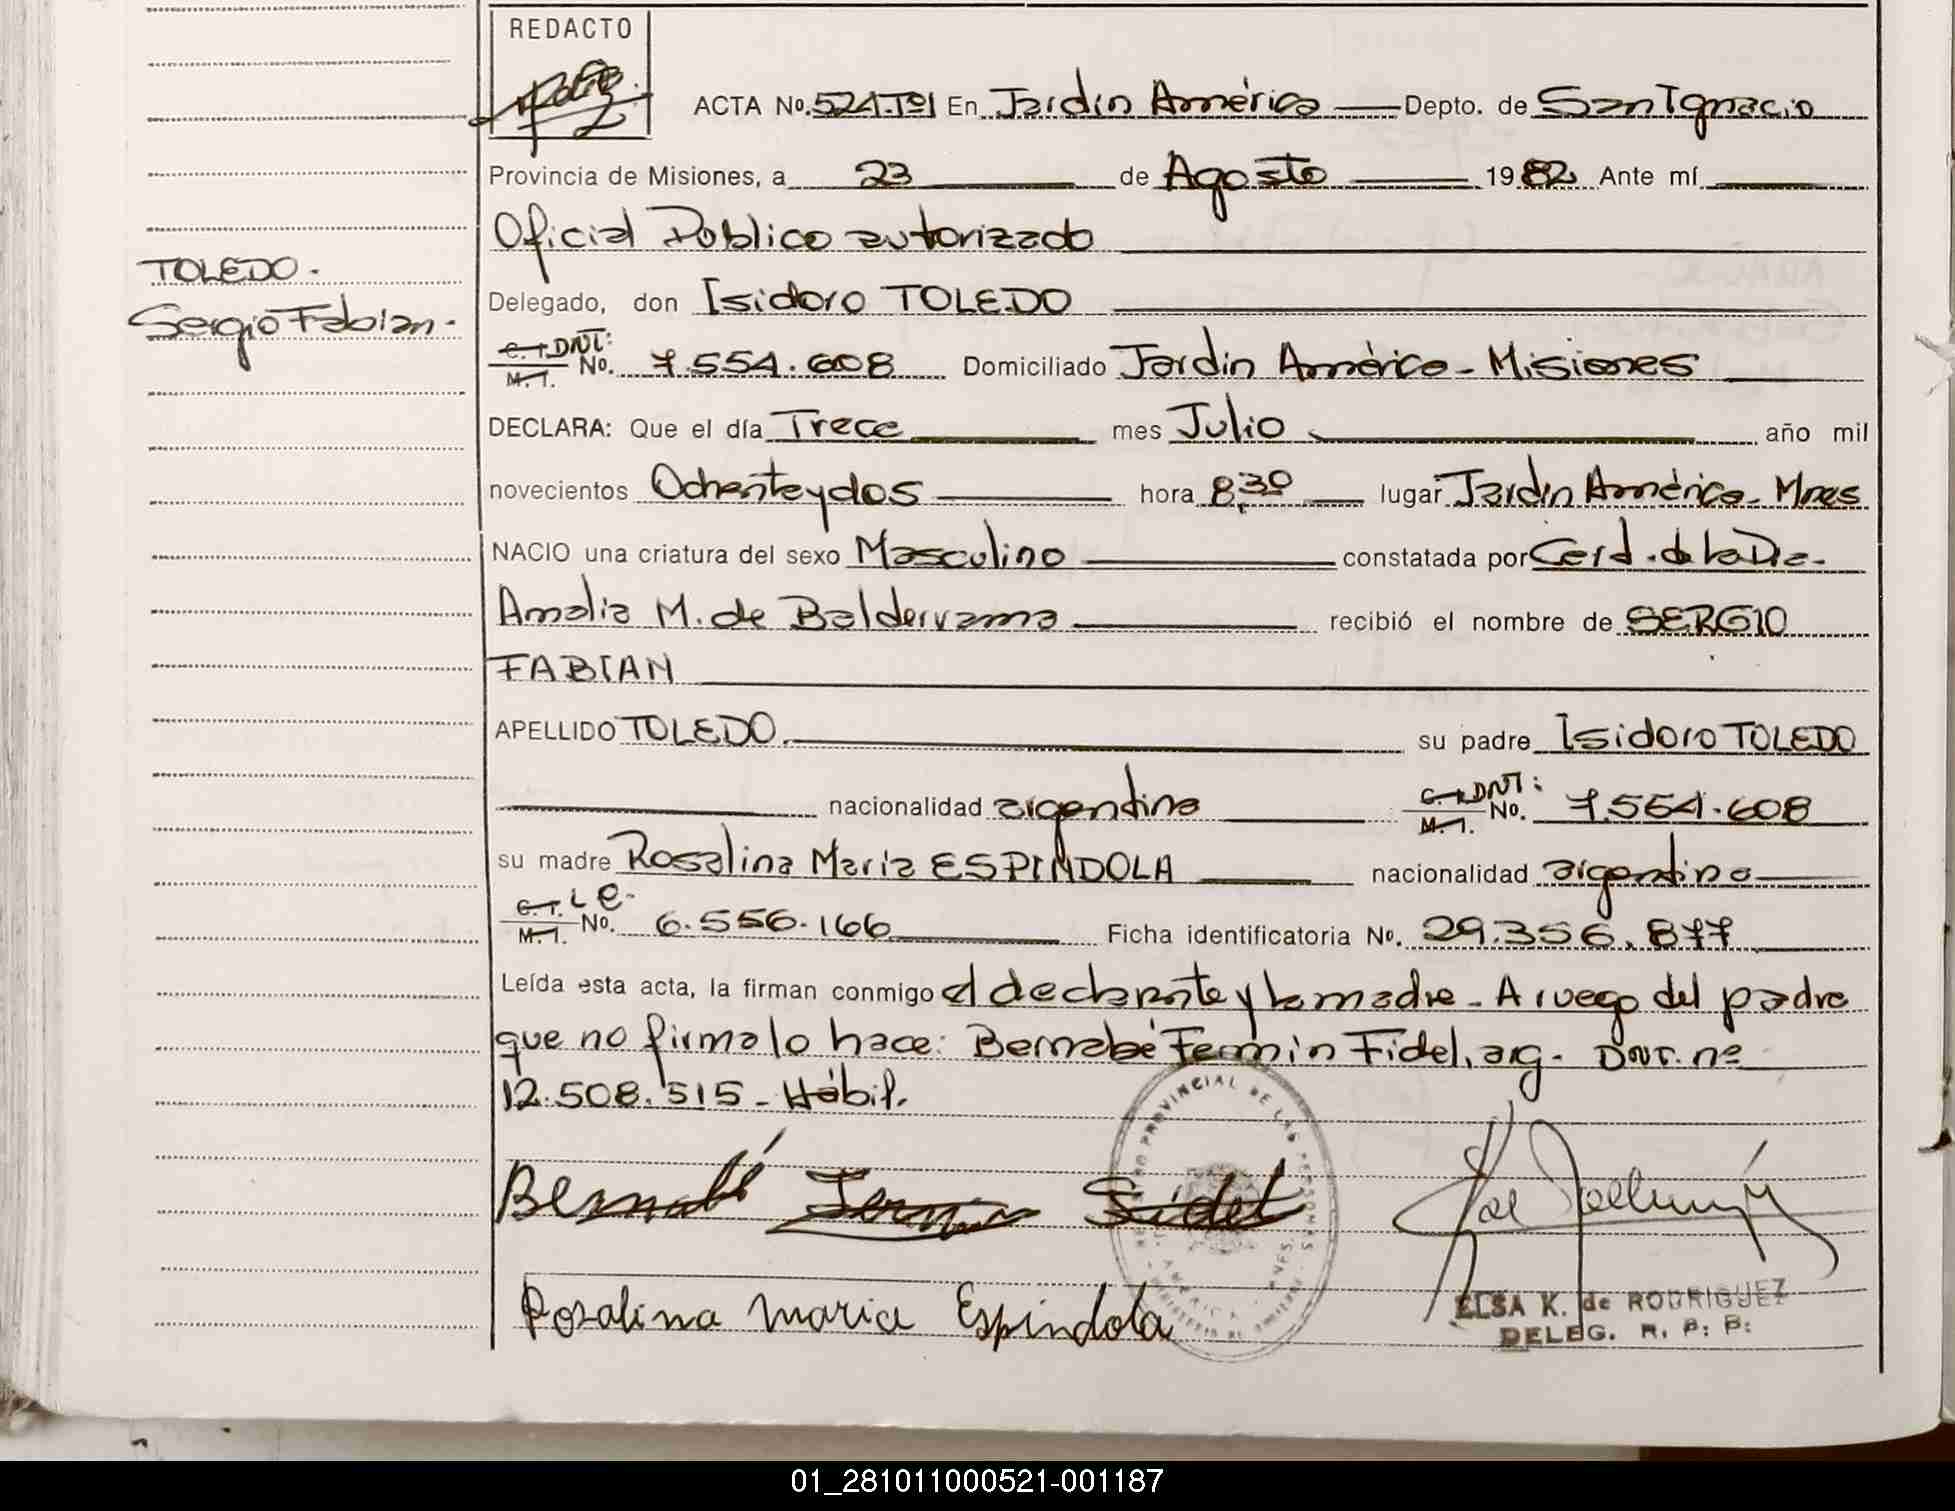 REDACTO
ACTA No. 524.Tº1 En Jardín América Depto. de San Ignacio
Provincia de Misiones, a 23 de Agosto 1982 Ante mí
Oficial Público autorizado
TOLEDO.
Sergio Fabian.-
Delegado, don Isidoro TOLEDO
C.I. DNI: M.I. No. 7.554.608 Domiciliado Jardin América - Misiones
DECLARA: Que el día Trece mes Julio año mil
novecientos Ochenta y dos hora 8,30 lugar Jardin América - Mnes
NACIO una criatura del sexo Masculino constatada por Cerd. de la Dra.
Amalia M. de Balderrama recibió el nombre de SERGIO
FABIAN
APELLIDO TOLEDO. su padre Isidoro TOLEDO
nacionalidad argentina C.I. DNI: M.I. No. 7.554.608
su madre Rosalina Maria ESPINDOLA nacionalidad argentina
C.I. L C. M.I. No. 6.556.166 Ficha identificatoria No. 29.356.877
Leída esta acta, la firman conmigo el declarante y la madre - A ruego del padre
que no firma lo hace: Bernabé Fermin Fidel, arg. DNI. nº
12.508.515 - Hábil.
REGISTRO PROVINCIAL DE LAS PERSONAS
Bernabé Fermin Fidel
Rosalina Maria Espindola
ELSA K. de RODRIGUEZ
DELEG. R. P. P.
01_281011000521-001187